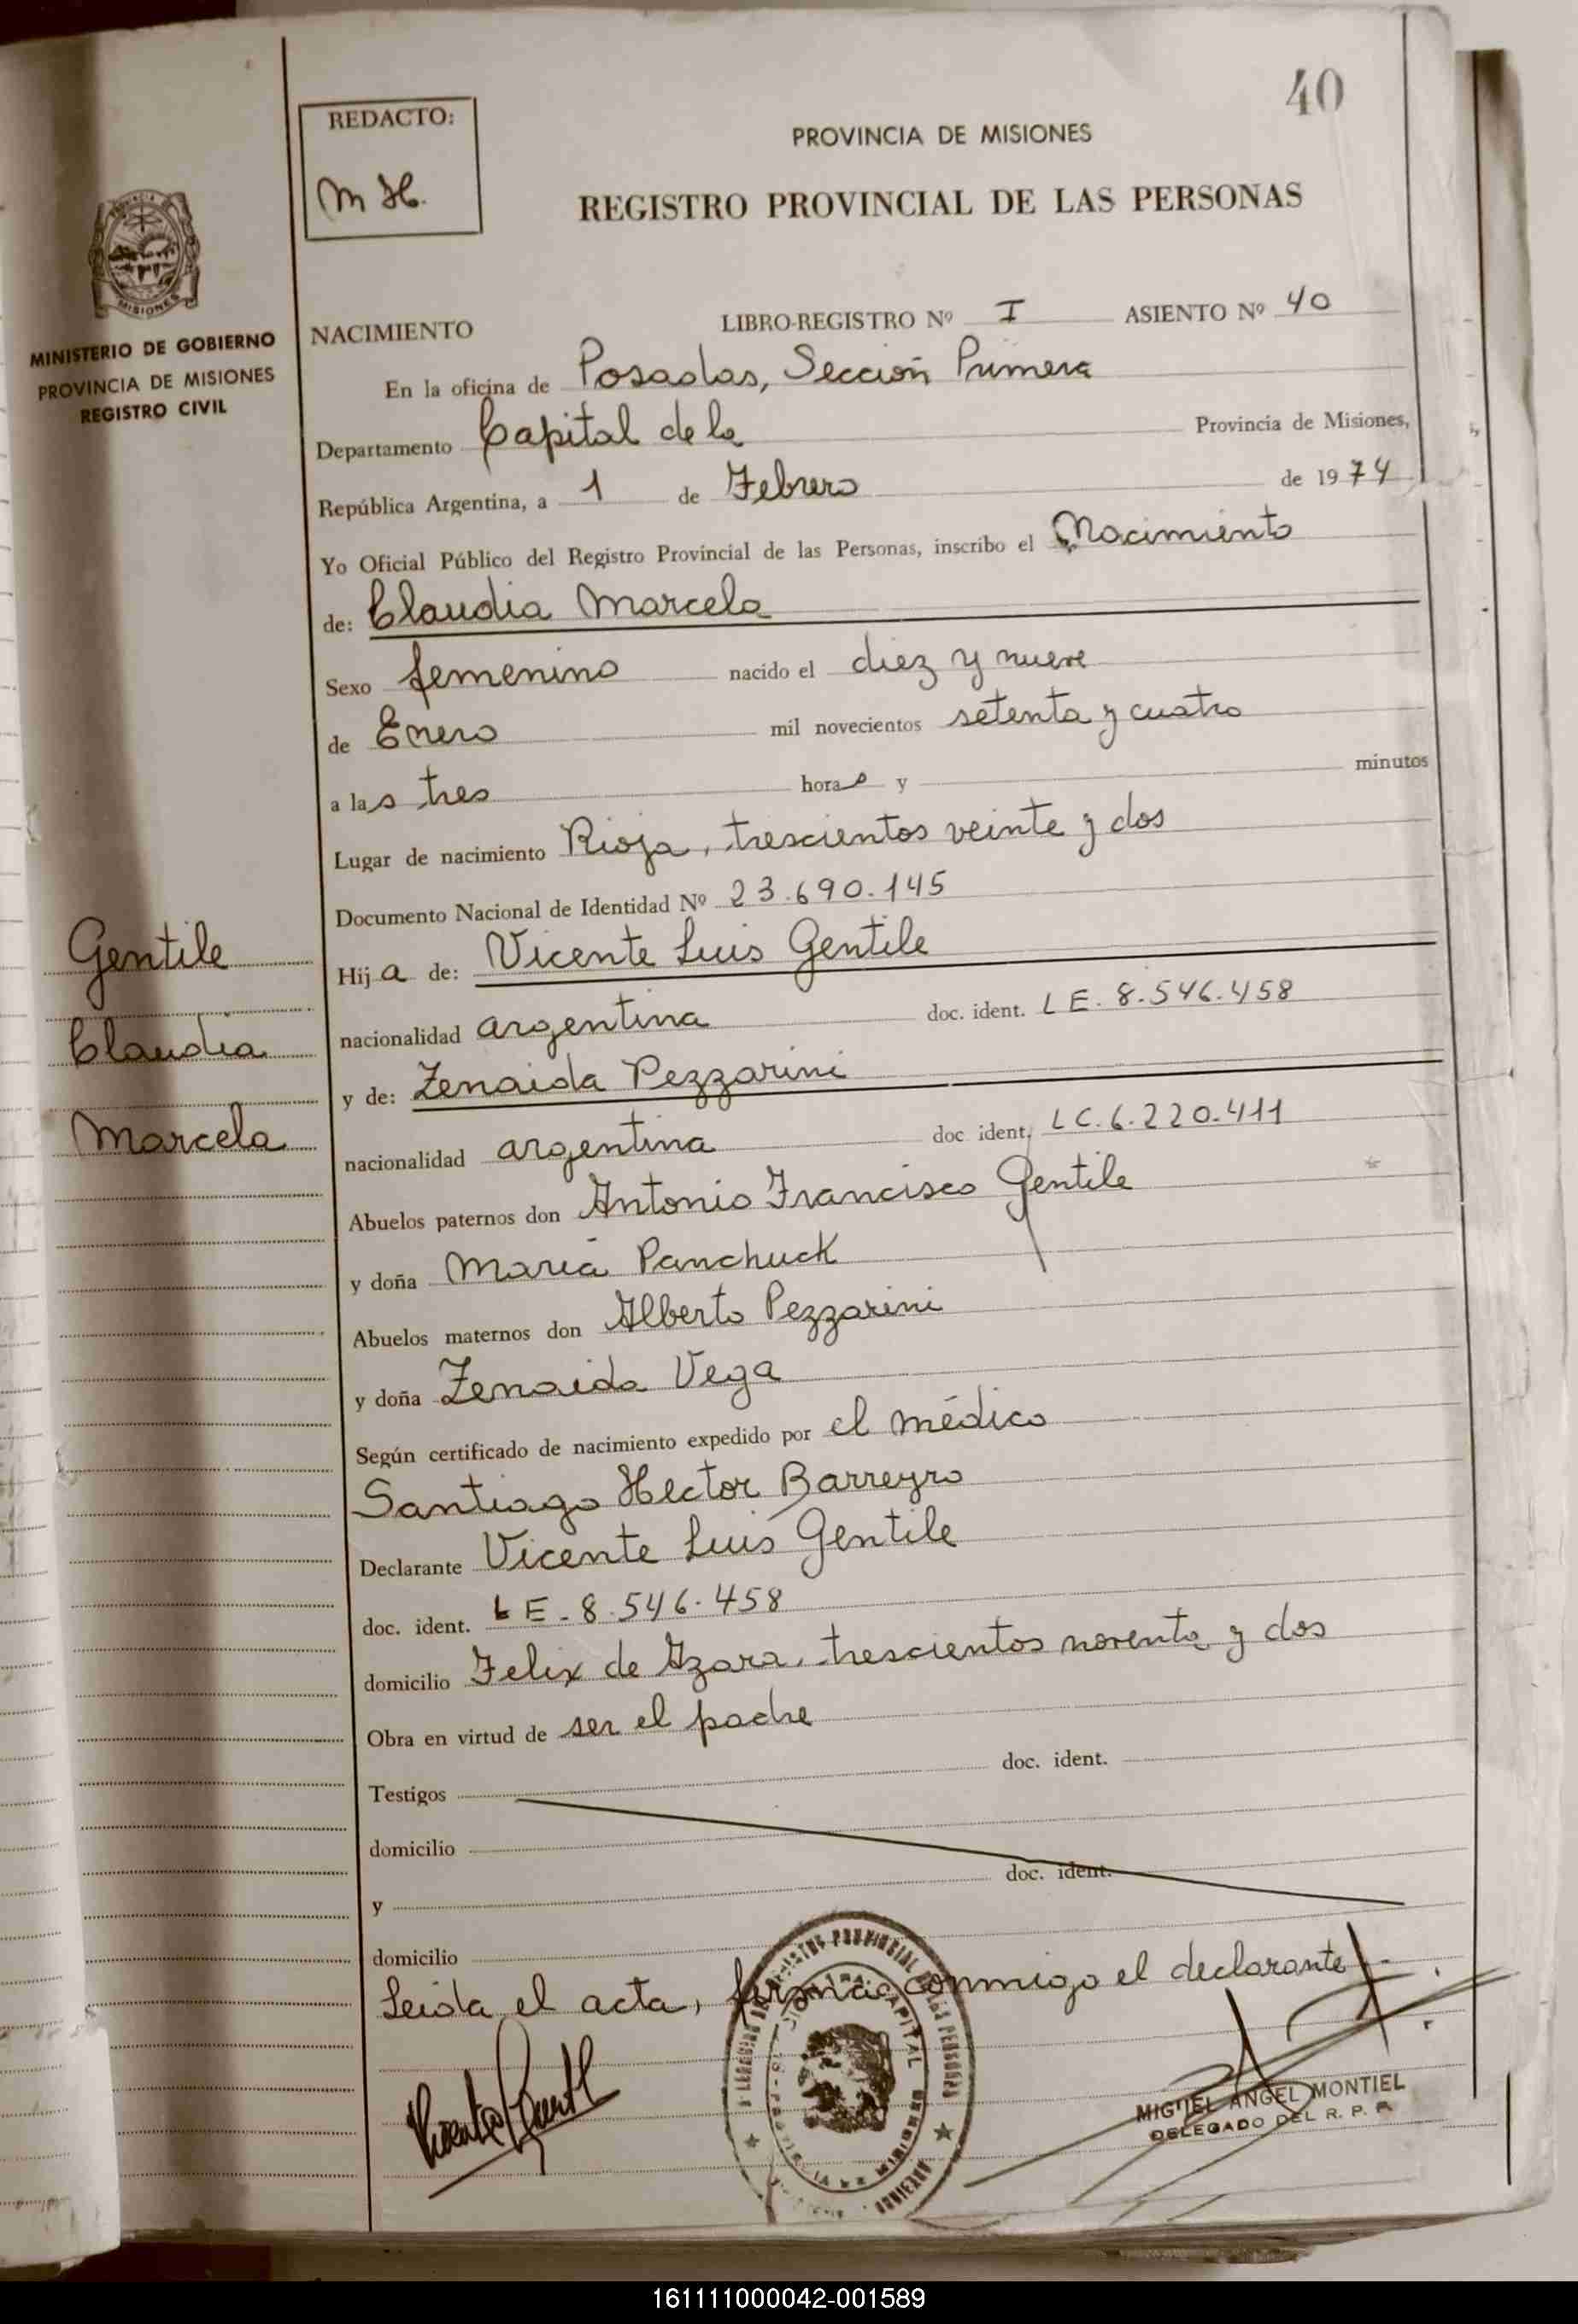 40
REDACTO:
M H.
PROVINCIA DE MISIONES
REGISTRO PROVINCIAL DE LAS PERSONAS
MISIONES
MINISTERIO DE GOBIERNO
PROVINCIA DE MISIONES
REGISTRO CIVIL
NACIMIENTO LIBRO-REGISTRO Nº I ASIENTO Nº 40
En la oficina de Posadas, Sección Primera
Departamento Capital de la Provincia de Misiones,
República Argentina, a 1 de Febrero de 1974
Yo Oficial Público del Registro Provincial de las Personas, inscribo el Nacimiento
de: Claudia Marcela
Sexo femenino nacido el diez y nueve
de Enero mil novecientos setenta y cuatro
a las tres horas y minutos
Lugar de nacimiento Rioja, trescientos veinte y dos
Documento Nacional de Identidad Nº 23.690.145
Gentile
Claudia
Marcela
Hija de: Vicente Luis Gentile
nacionalidad argentina doc. ident. LE. 8.546.458
y de: Zenaida Pezzarini
nacionalidad argentina doc ident. LC. 6.220.411
Abuelos paternos don Antonio Francisco Gentile
y doña María Panchuck
Abuelos maternos don Alberto Pezzarini
y doña Zenaida Vega
Según certificado de nacimiento expedido por el médico
Santiago Hector Barreyro
Declarante Vicente Luis Gentile
doc. ident. LE - 8.546.458
domicilio Felix de Azara, trescientos noventa y dos
Obra en virtud de ser el padre
Testigos doc. ident.
domicilio
y doc. ident.
domicilio
Leida el acta, firma conmigo el declarante
MIGUEL ANGEL MONTIEL
DELEGADO DEL R. P. P.
161111000042-001589